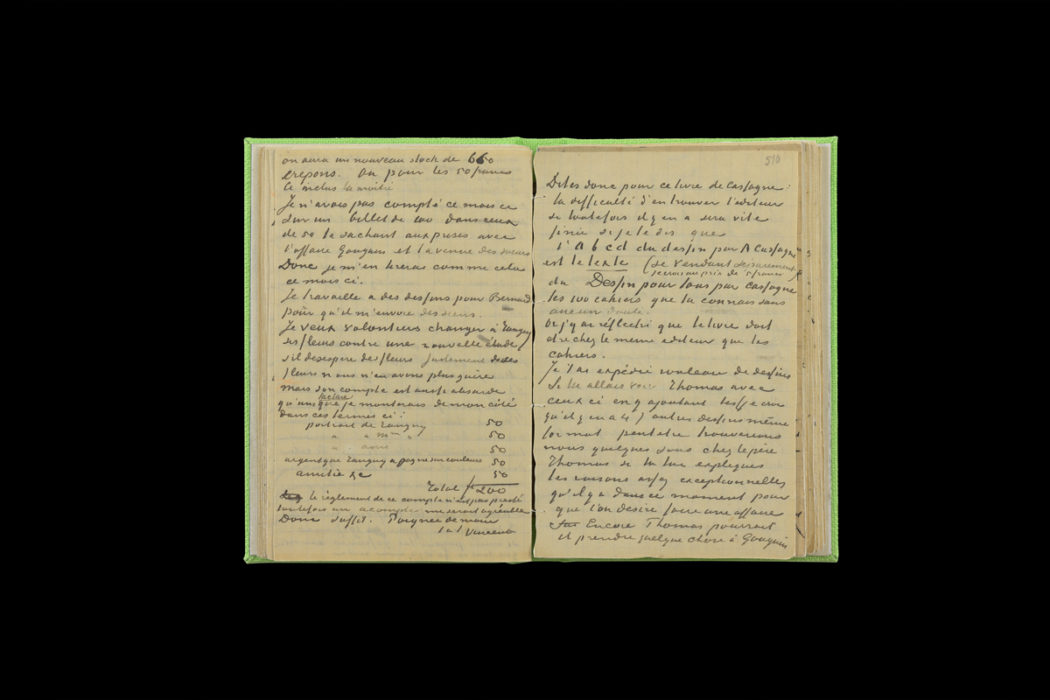 on aura un nouveau stock de 660
crepons. On pour les 50 francs
le mettra la moitié
Je n'avais pas compté ce mois ce
sur un billet de 100 dans ceux
de 50 te sachant aux prises avec
l'affaire Gauguin et la venue des soeurs
Donc je m'en tirerai comme cela
ce mois ci.
Je travaille a des dessins pour Bernard
pour qu'il m'envoie des siens.
Je veux volontiers changer à Tanguy
ses fleurs contre une nouvelle étude
s'il desespere de fleurs justement de des
fleurs nous n'en avons plus guère
mais son compte est aussi absurde
qu'une facture que je monterais de mon côté
dans ces termes ci :
portrait de Tanguy 50
" " Mme " 50
" " autre 50
argent que Tanguy a gagné sur couleurs 50
amitie &c 50
Total fr 200
le règlement de ce compte n'est pas pressé
toutefois un acompte me serait agréable
Donc suffit. Poignée de main
t. à t. Vincent
510
Dites donc pour ce livre de Cassagne
la difficulté d'en trouver l'editeur
si toutefois il y en a sera vite
finie si je te dis que
l'A b c d du dessin par A Cassagne
est le texte (se vendant séparement
je crois au prix de 5 francs)
du Dessin pour tous par Cassagne
les 100 cahiers que tu connais sans
aucun doute.
Or j'y ai réflechi que le livre doit
etre chez le meme editeur que les
cahiers.
Je t'ai expédié rouleau de dessins
Si tu allais voir Thomas avec
ceux ci en y ajoutant les je crois
qu'il y en a 4) autres dessins même
format peut etre trouverions
nous quelques sous chez le père
Thomas si tu lui expliques
les raisons assez exceptionnelles
qu'il y a dans ce moment pour
que l'on desire faire une affaire
Encore Thomas pourrait
il prendre quelque chose à Gauguin